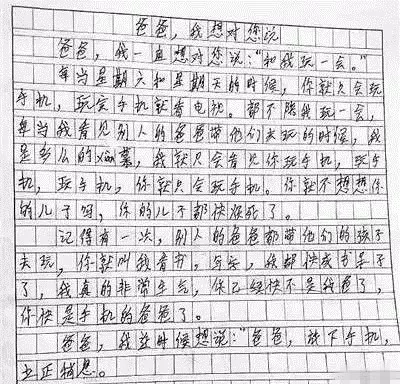 爸爸，我想对您说
爸爸，我一直想对您说："和我玩一会。"
每当星期六和星期天的时候，你就只会玩
手机，玩完手机就看电视。都不陪我玩一会，
每当我看见别人的爸爸带他们去玩的时候，我
是多么的xian慕，我就只会看见你玩手机，玩手
机，玩手机，你就只会玩手机。你就不想想你
的儿子吗，你的儿子都快没死了。
记得有一次，别人的爸爸都带他们的孩子
去玩，你就叫我看书，写字，我都快成书呆子
了，我真的非常生气，你已经快不是我爸了，
你快是手机的爸爸了。
爸爸，我这时候想说："爸爸，放下手机，